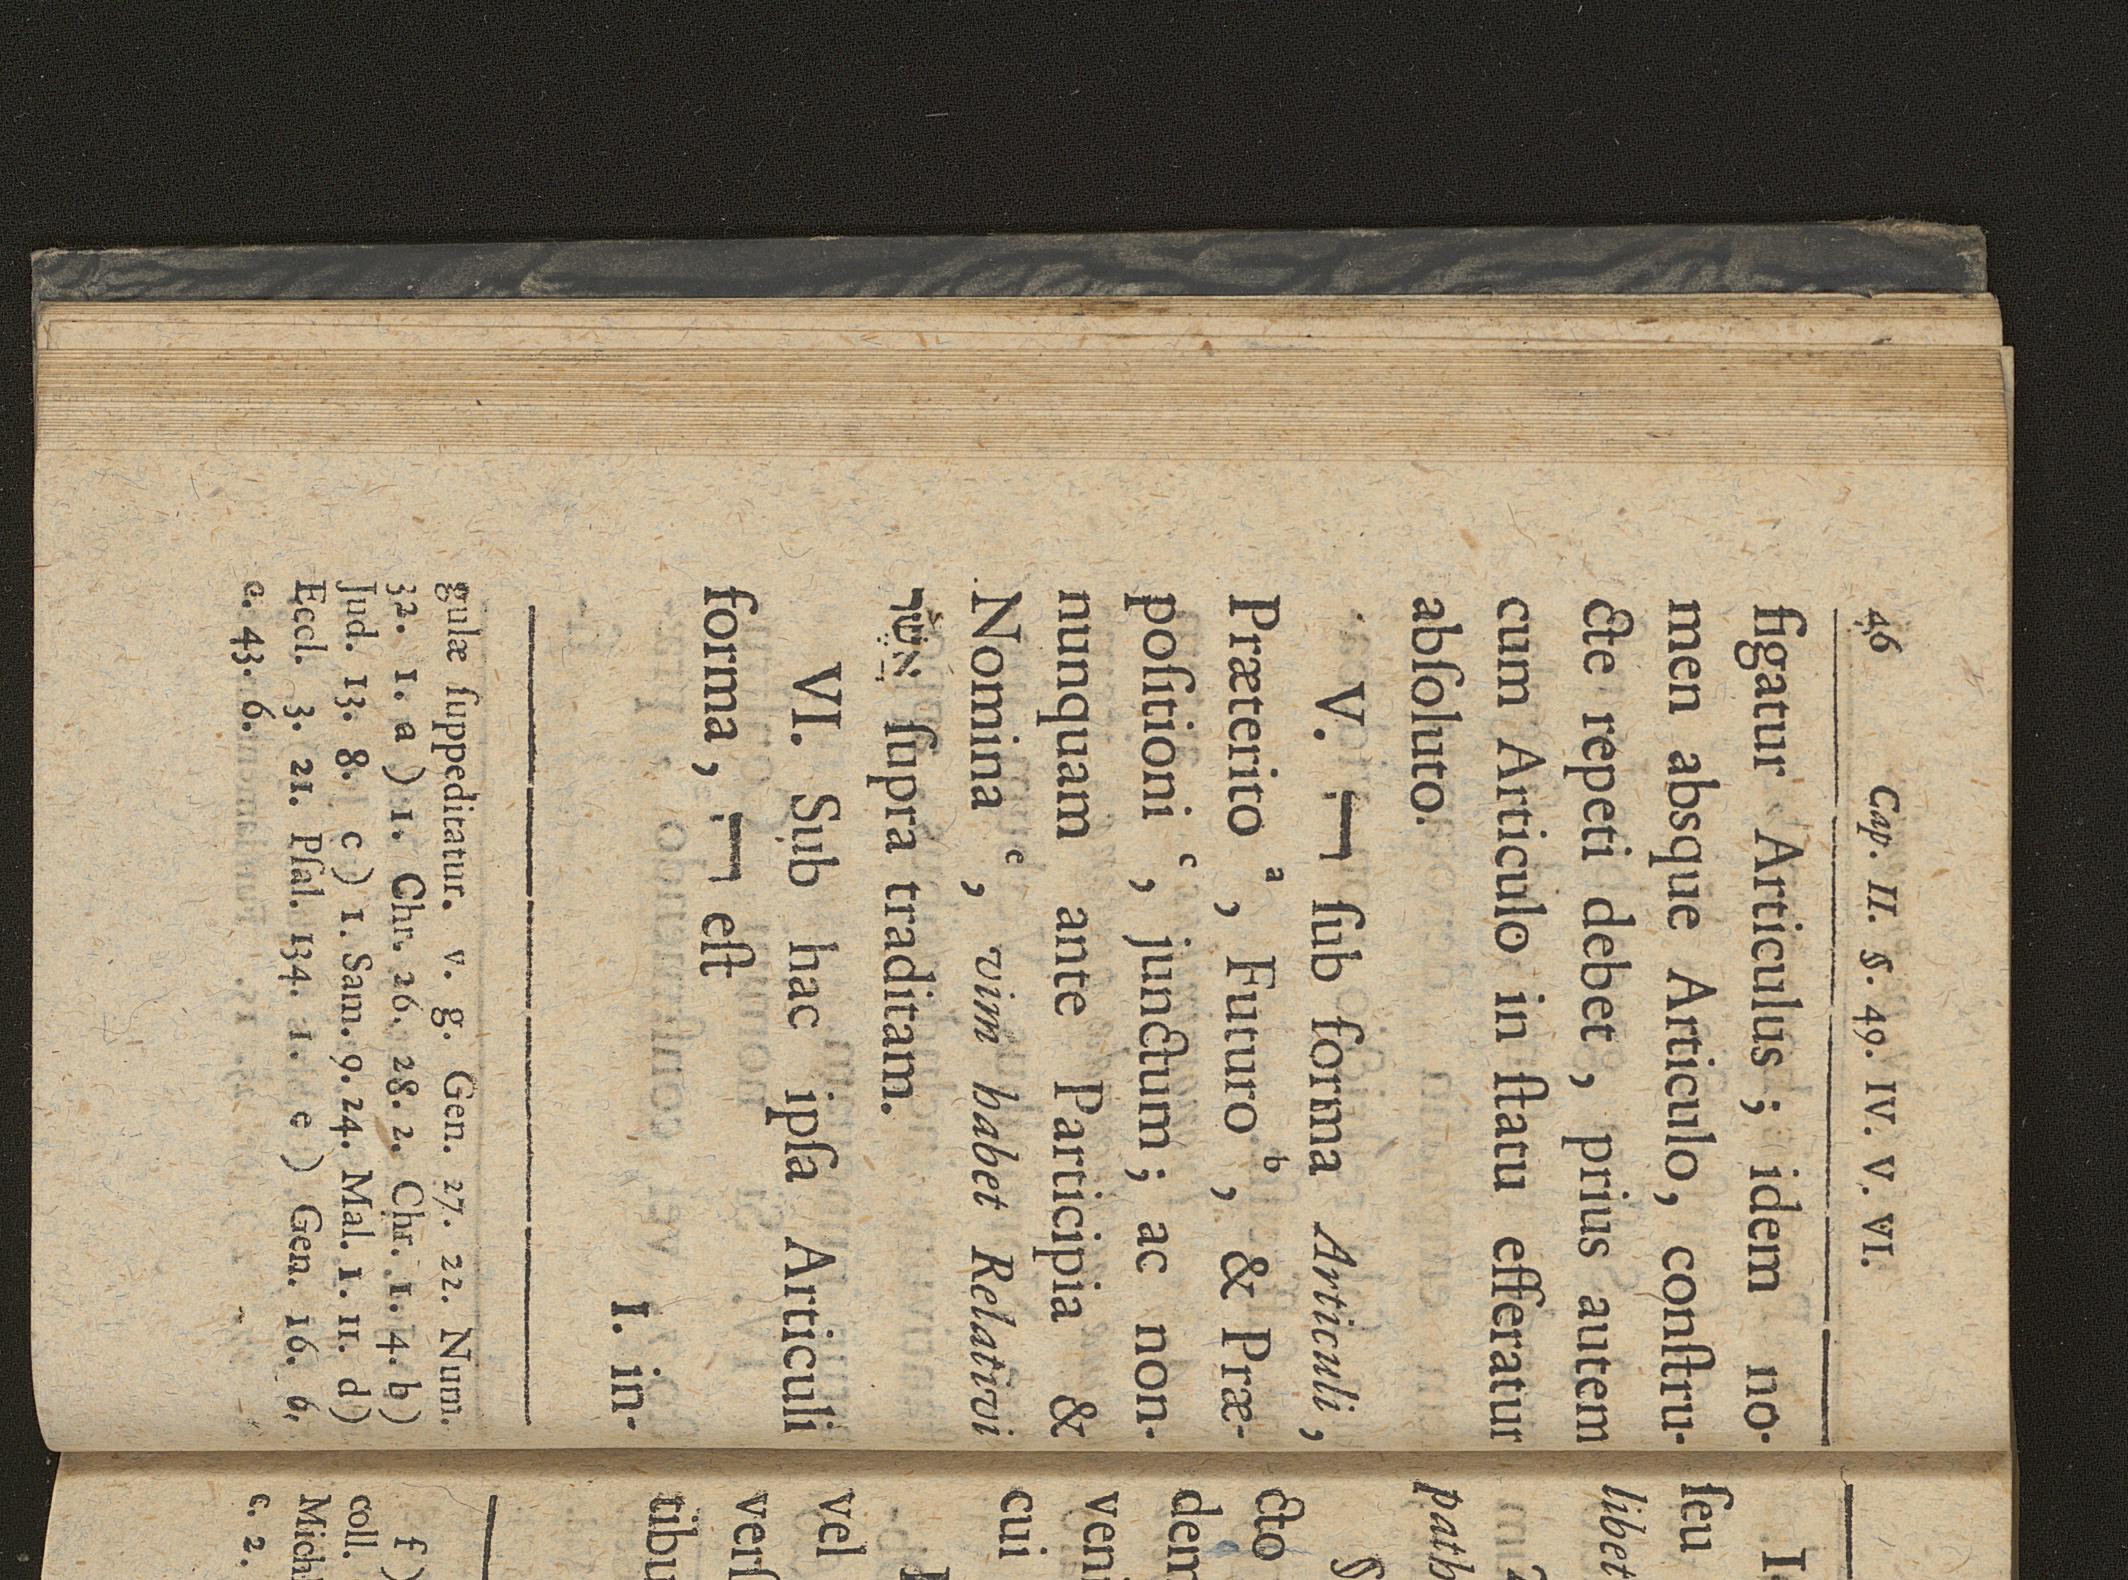 46 Cap. II. §. 49. IV. V. VI.
figatur Articulus; idem no-
men absque Articulo, conſtru-
cte repeti debet, prius autem
cum Articulo in ſtatu efferatur
abſoluto.
V. ־ה ſub forma Articuli,
Præterito a, Futuro b, & Præ-
poſitioni c, junctum; ac non-
nunquam ante Participia &
Nomina c, vim habet Relativi
אשר ſupra traditam.
VI. Sub hac ipſa Articuli
forma, ־ה eſt
I. in-
gulæ ſuppeditatur. v. g. Gen. 27. 22. Num.
32. 1. a) 1. Chr. 26. 28. 2. Chr. 1. 4. b)
Jud. 13. 8. c) 1. Sam. 9. 24. Mal. 1. 11. d)
Eccl. 3. 21. Pſal. 134. 1. e) Gen. 16. 6.
c. 43. 6.
ſeu
libet
path
§
cto
dem
veni
cui
vel
verſ
tibu
f)
coll.
Mich
c. 2.